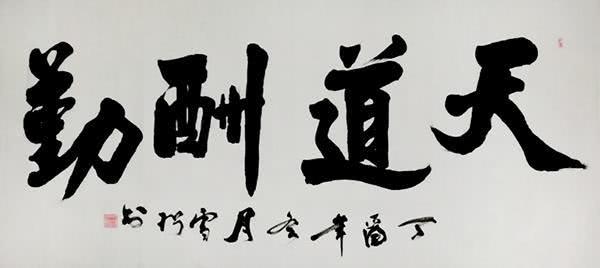 天道酬勤
丁酉年冬月雪书